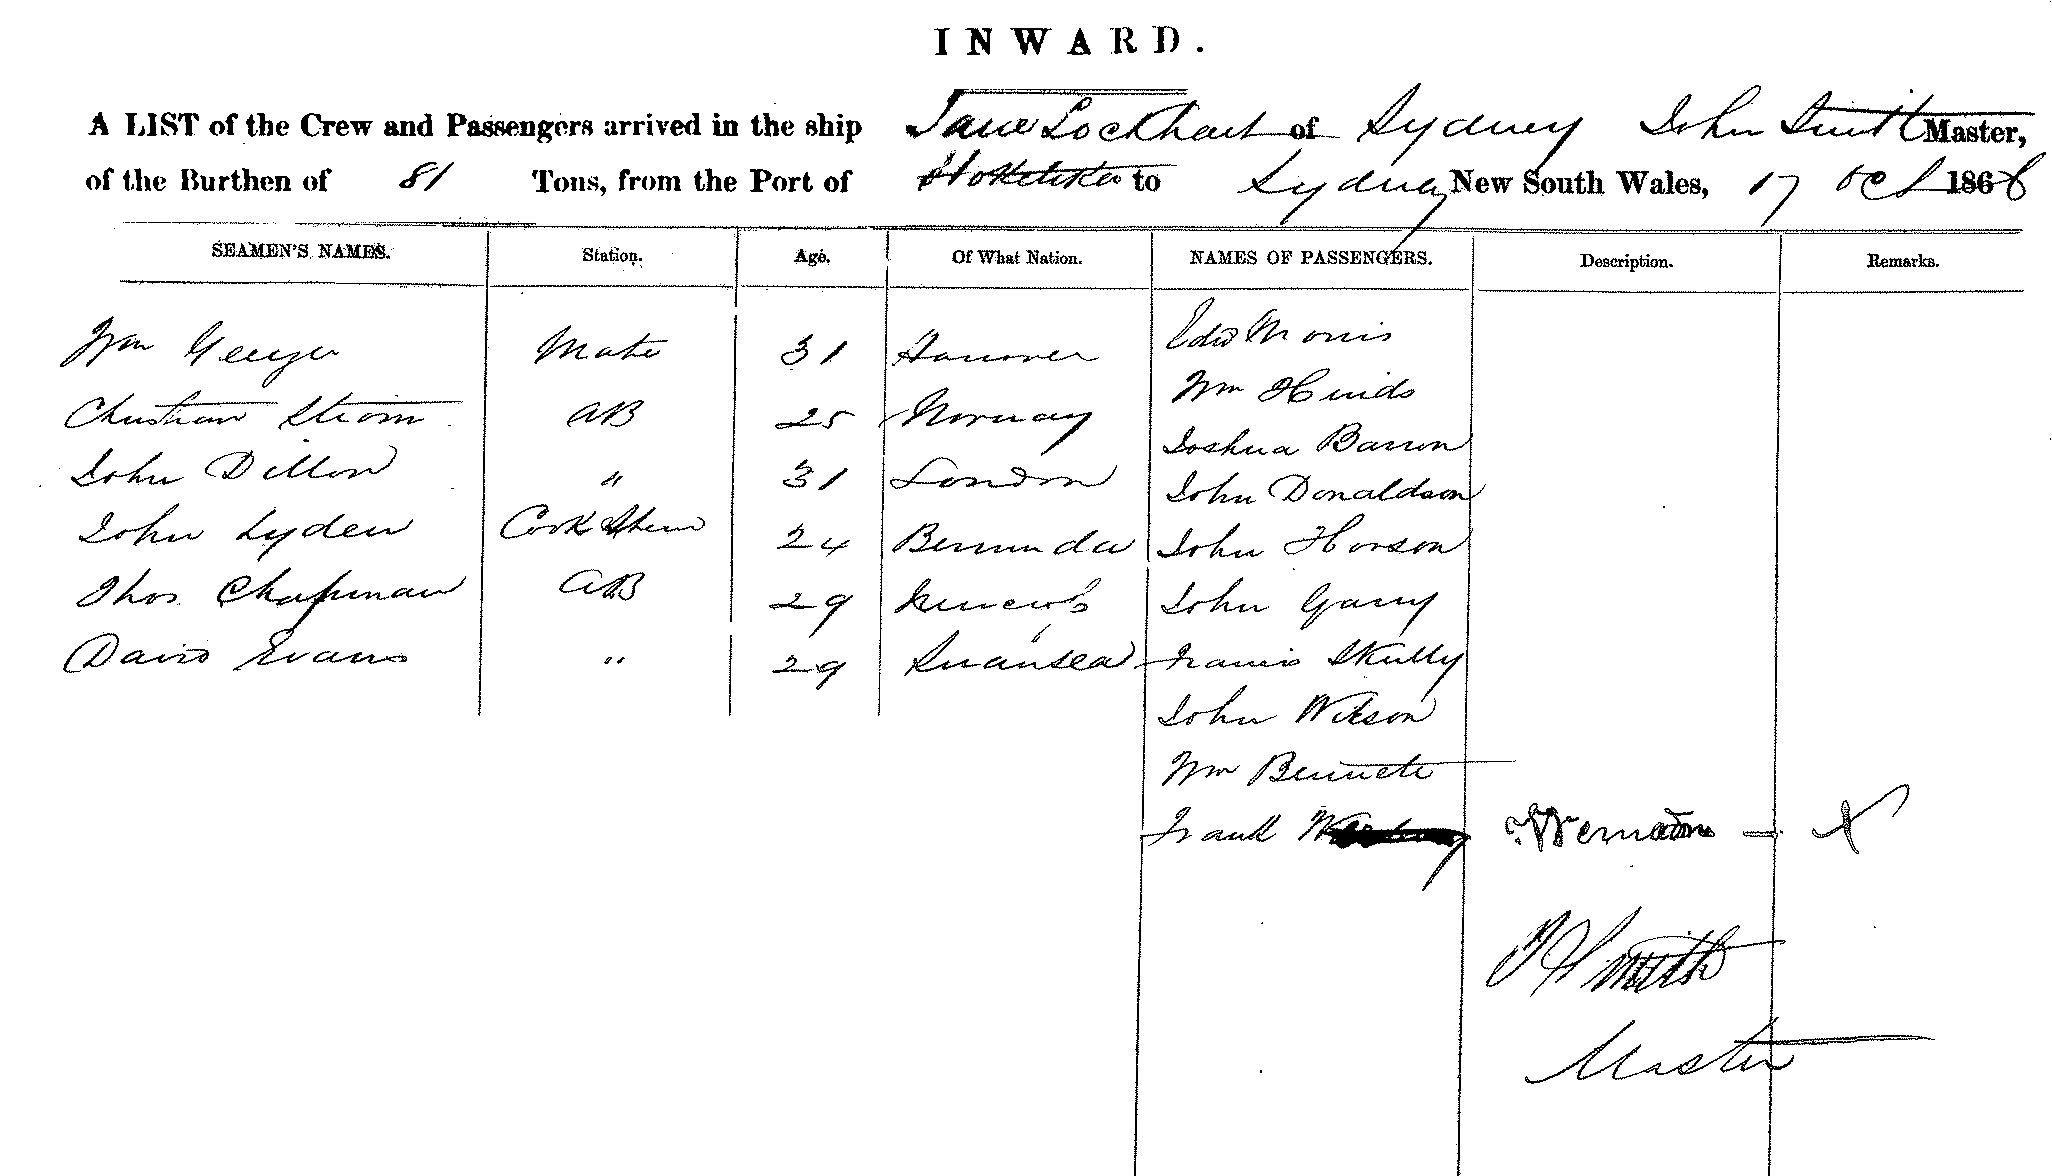 INWARD.
A LIST of the Crew and Passengers arrived in the ship Jane Lockhart of Sydney John Smith Master,
of the Burthen of 81 Tons, from the Port of Hokitika to Sydney New South Wales, 17 Oct 1866
SEAMEN'S NAMES. Station. Age. Of What Nation. NAMES OF PASSENGERS. Description. Remarks.
Edwd Morris
Wm Mate 31 Hanover
Wm Hinds
Christian Strom AB 25 Norway
Joshua Barron
John Dillon " 31 London
John Donaldson
John Lyden Cook 24 Bermuda John Horson
Thos Chapman AB 29 John Garry
David Evans " 29 Swansea Francis Skully
John Wilson
Wm Bennett
Frank
J Smith
Master